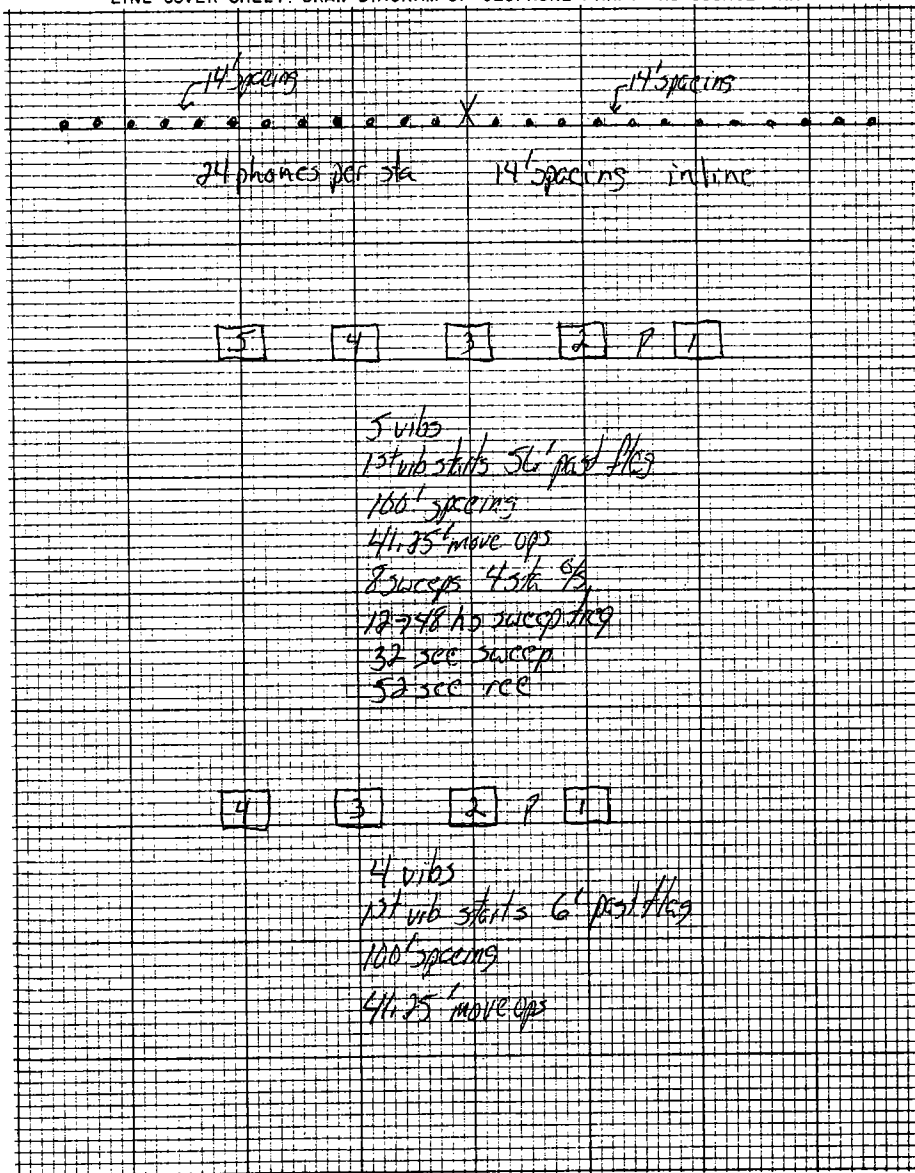 14' spacing 14' spacing
X
24 phones per sta 14' spacing inline
5 4 3 2 P 1
5 vibs
1st vib starts 56' past flag
100' spacing
41.25' move ups
8 sweeps 4 sta
12→48 hz sweep freq
32 sec sweep
52 sec rec
4 3 2 P 1
4 vibs
1st vib starts 6' past flag
100' spacing
41.25' move ups